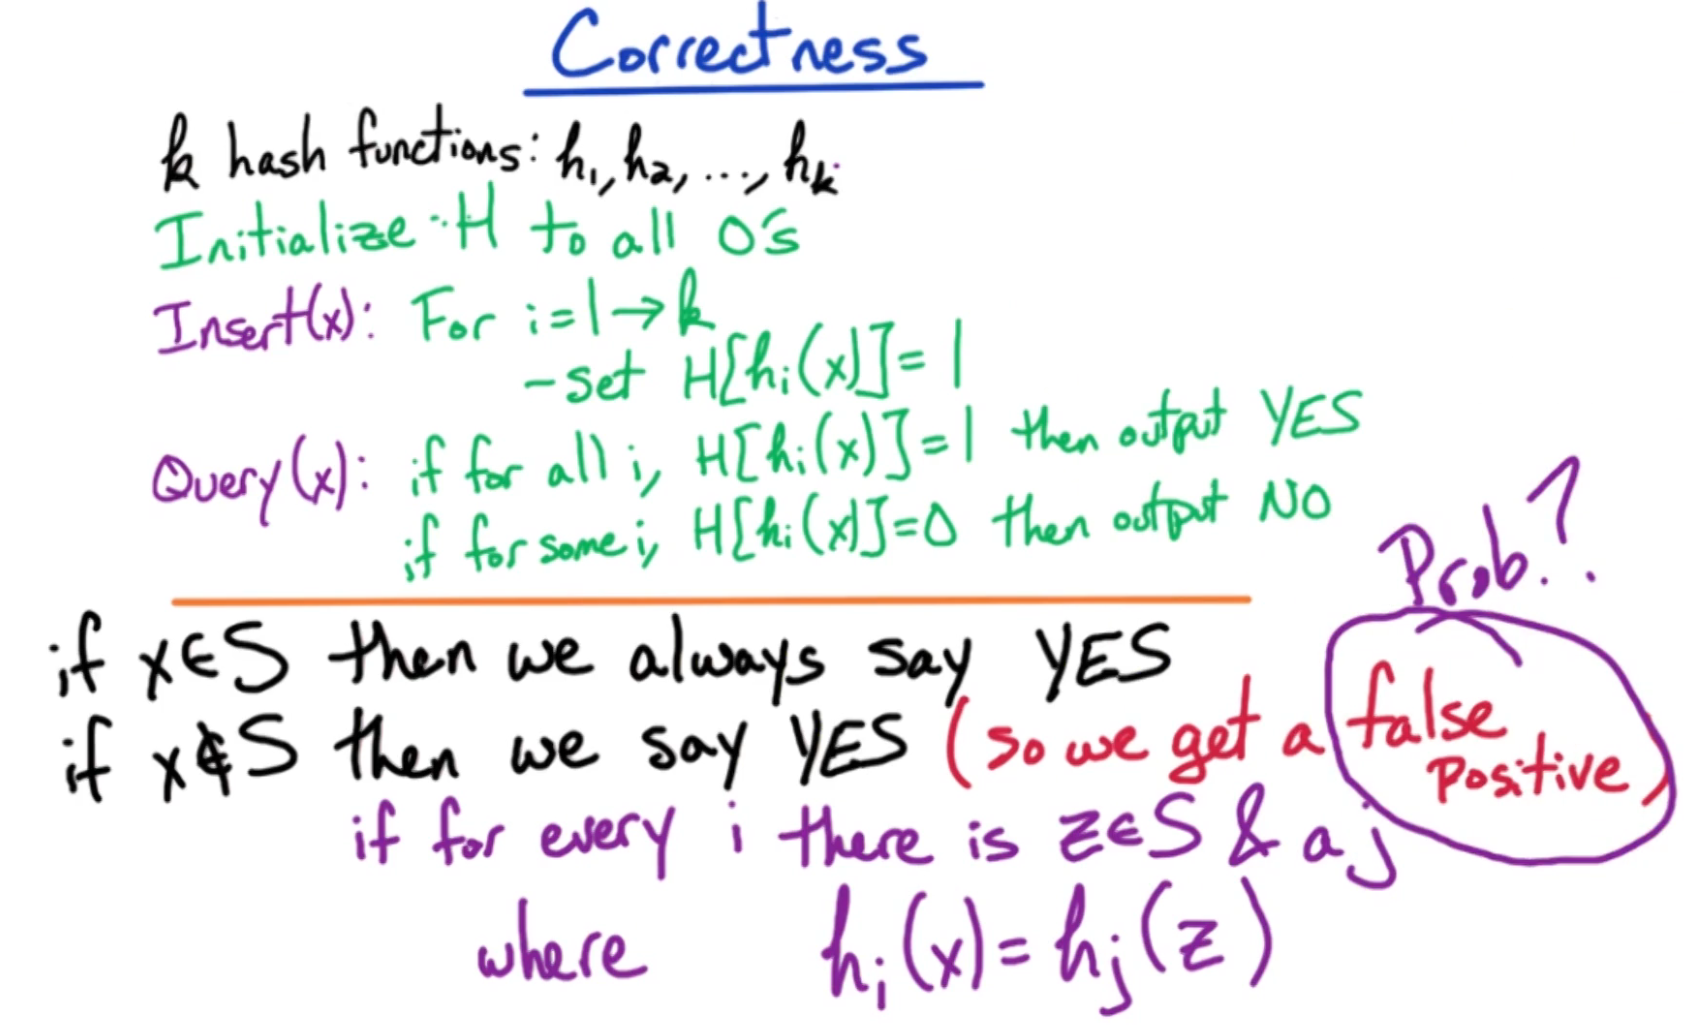 Correctness
k hash functions: h₁, h₂, ..., hₖ
Initialize: H to all 0's
Insert(x): For i=1→k
- set H[hᵢ(x)]=1
Query(x): if for all i, H[hᵢ(x)]=1 then output YES
if for some i, H[hᵢ(x)]=0 then output NO
Prob.?
if x∈S then we always say YES
if x∉S then we say YES (so we get a false
positive)
if for every i there is z∈S & a j
where hᵢ(x)=hⱼ(z)